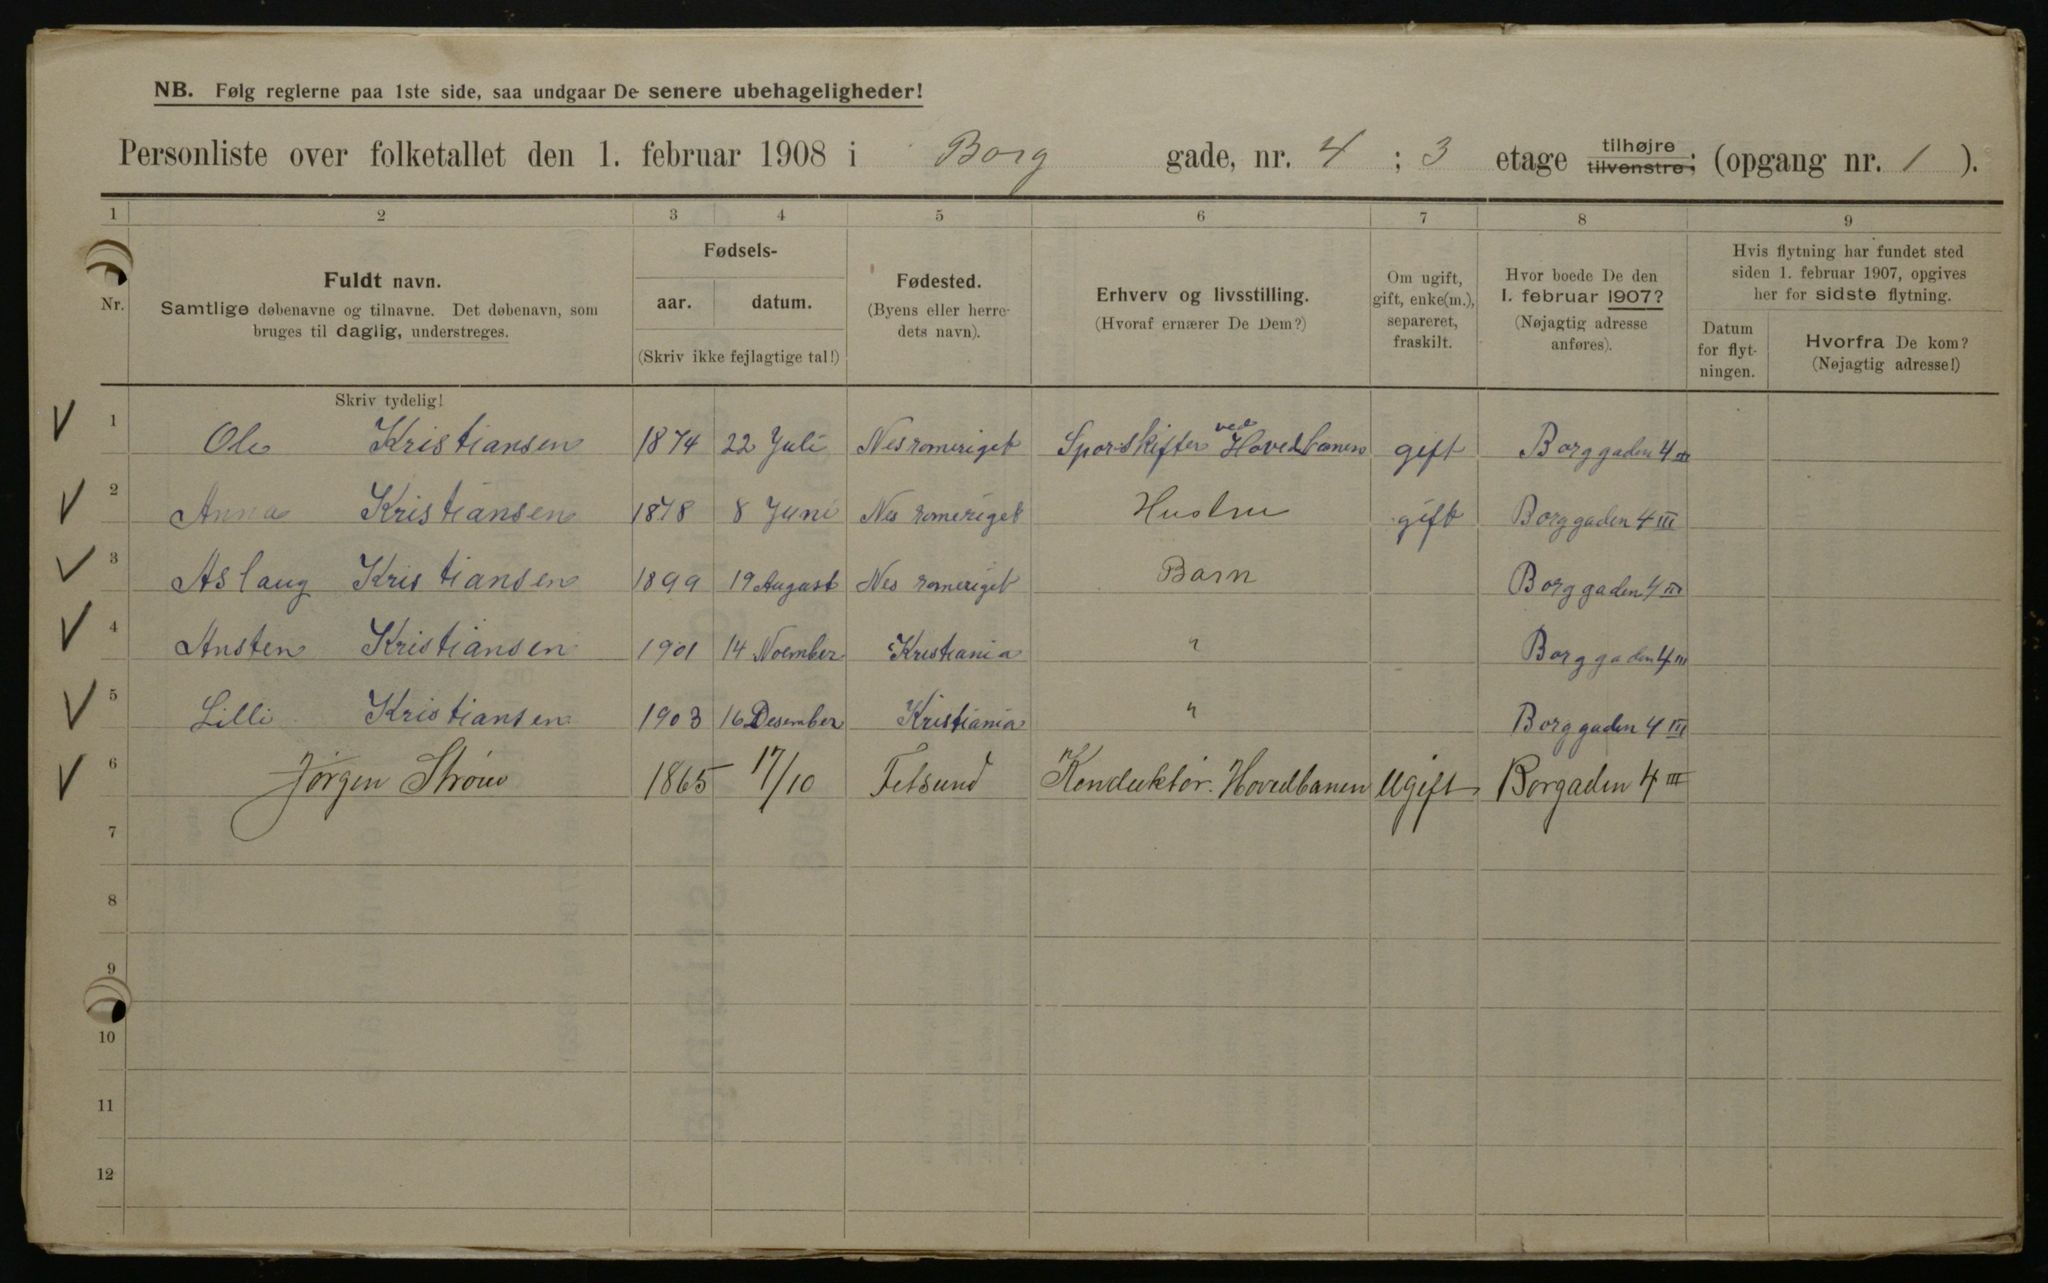 NB. Følg reglerne paa 1ste side, saa undgaar De senere ubehageligheder!
Personliste over folketallet den 1. februar 1908 i Borg gade, nr. 4 ; 3 etage tilhøjre tilvenstre; (opgang nr. 1 ).
1 2 3 4 5 6 7 8 9
Nr.
Fuldt navn.
Samtlige døbenavne og tilnavne. Det døbenavn, som
bruges til daglig, understreges.
Fødsels-
aar. datum.
(Skriv ikke fejlagtige tal!)
Fødested.
(Byens eller herre-
dets navn).
Erhverv og livsstilling.
(Hvoraf ernærer De Dem?)
Om ugift,
gift, enke(m.),
separeret,
fraskilt.
Hvor boede De den
1. februar 1907?
(Nøjagtig adresse
anføres).
Hvis flytning har fundet sted
siden 1. februar 1907, opgives
her for sidste flytning.
Datum
for flyt-
ningen.
Hvorfra De kom?
(Nøjagtig adresse!)
Skriv tydelig!
1 Ole Kristiansen 1874 22 Juli Nesromeriget Sporskifter ved Hovedbanen gift Borggaden 4 III
2 Anna Kristiansen 1878 8 Juni Nes romeriget Hustru gift Borggaden 4 III
3 Aslaug Kristiansen 1899 19 August Nes romeriget Barn Borggaden 4 III
4 Austen Kristiansen 1901 14 Noember Kristiania " Borggaden 4 III
5 Lilli Kristiansen 1903 16 Desember Kristiania " Borggaden 4 III
6 Jørgen Strøm 1865 17/10 Fetsund Konduktør. Hovedbanen Ugift Borgaden 4 III
7
8
9
10
11
12